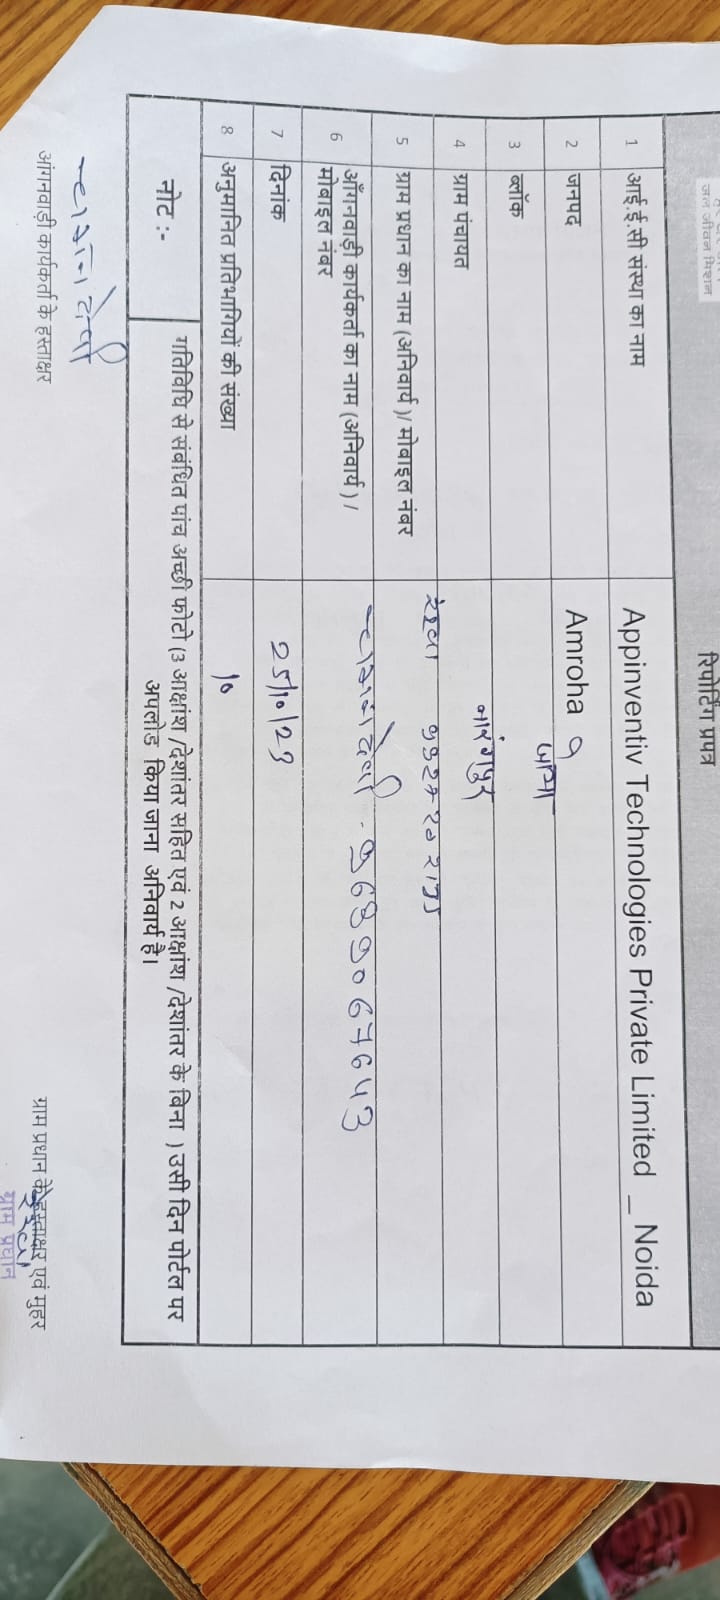 जल जीवन मिशन
रिपोर्टिंग प्रपत्र
1 आई.ई.सी संस्था का नाम Appinventiv Technologies Private Limited _ Noida
2 जनपद Amroha
3 ब्लॉक
4 ग्राम पंचायत नारंगपुर
5 ग्राम प्रधान का नाम (अनिवार्य)/ मोबाइल नंबर
6 आँगनवाड़ी कार्यकर्ता का नाम (अनिवार्य) /
मोबाइल नंबर देवी
7 दिनांक 25/10/23
8 अनुमानित प्रतिभागियों की संख्या 10
नोट :- गतिविधि से संबंधित पांच अच्छी फोटो (3 आक्षांश /देशांतर सहित एवं 2 आक्षांश /देशांतर के बिना ) उसी दिन पोर्टल पर
अपलोड किया जाना अनिवार्य है।
देवी
आंगनवाड़ी कार्यकर्ता के हस्ताक्षर
ग्राम प्रधान के हस्ताक्षर एवं मुहर
ग्राम प्रधान